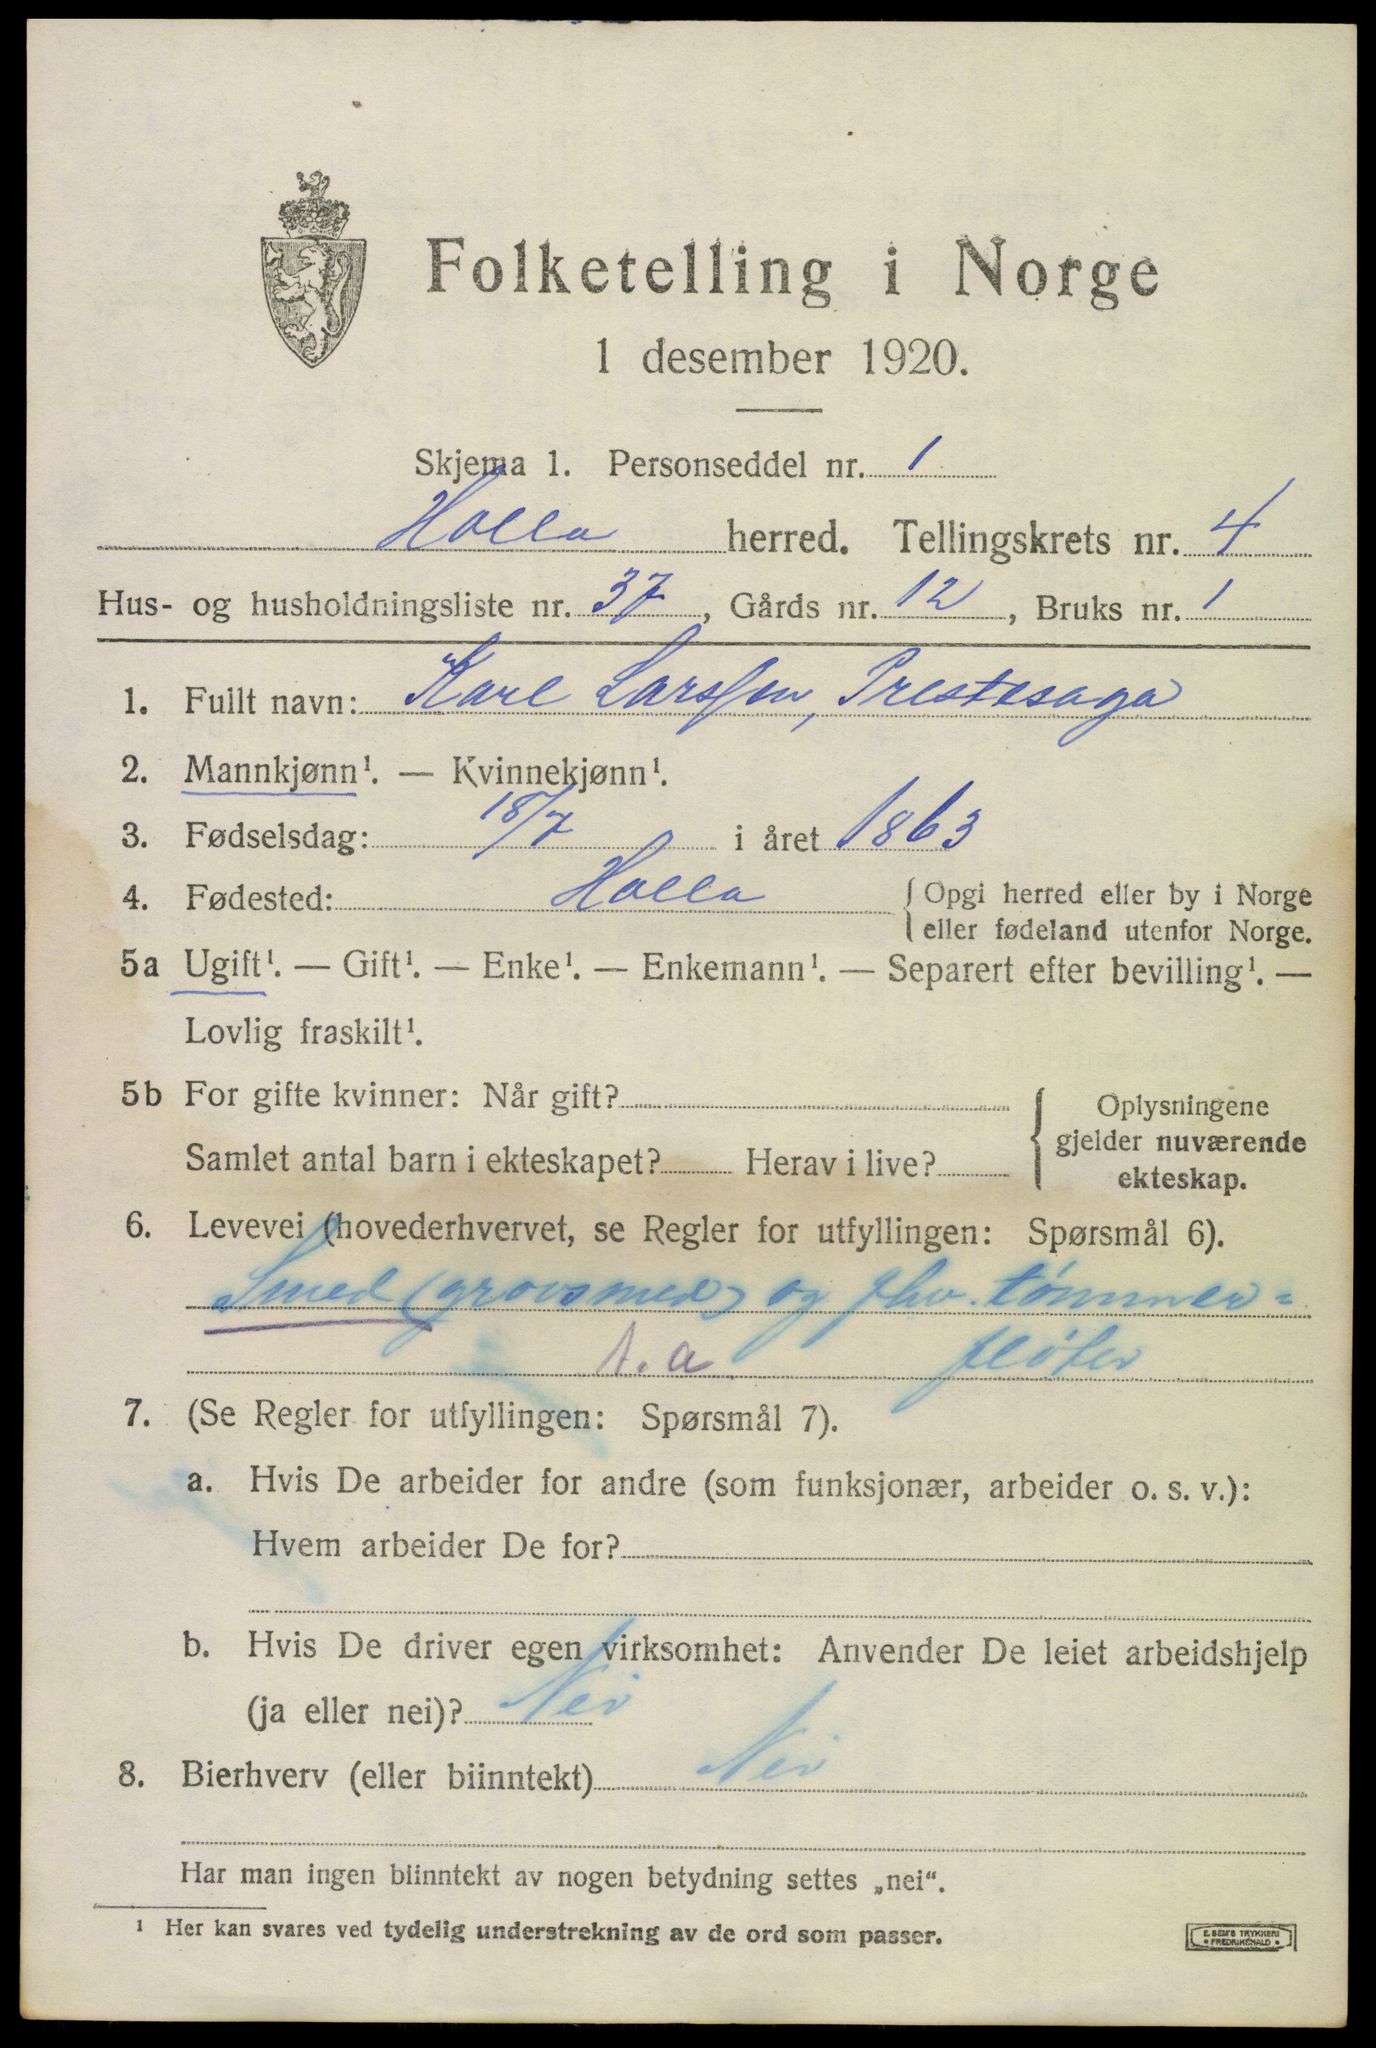 Folketelling i Norge
1 desember 1920.
Skjema 1. Personseddel nr. 1
Holla herred. Tellingskrets nr. 4
Hus- og husholdningsliste nr. 37, Gårds nr. 12, Bruks nr. 1
1. Fullt navn: Karl Larssen, Prestesaga
2. Mannkjønn¹. — Kvinnekjønn¹.
3. Fødselsdag: 18/7 i året 1863
4. Fødested: Holla { Opgi herred eller by i Norge
eller fødeland utenfor Norge.
5a Ugift¹. — Gift¹. — Enke¹. — Enkemann¹. — Separert efter bevilling¹. —
Lovlig fraskilt¹.
5b For gifte kvinner: Når gift? { Oplysningene
gjelder nuværende
Samlet antal barn i ekteskapet? Herav i live?
ekteskap.
6. Levevei (hovederhvervet, se Regler for utfyllingen: Spørsmål 6).
Smed (grovsmed) og fhv. tømmer=
s.a fløter
7. (Se Regler for utfyllingen: Spørsmål 7).
a. Hvis De arbeider for andre (som funksjonær, arbeider o. s. v.):
Hvem arbeider De for?
b. Hvis De driver egen virksomhet: Anvender De leiet arbeidshjelp
(ja eller nei)? Nei
8. Bierhverv (eller biinntekt) Nei
Har man ingen biinntekt av nogen betydning settes „nei“.
¹ Her kan svares ved tydelig understrekning av de ord som passer.
E. SEM'S TRYKKERI
• FREDRIKSHALD •